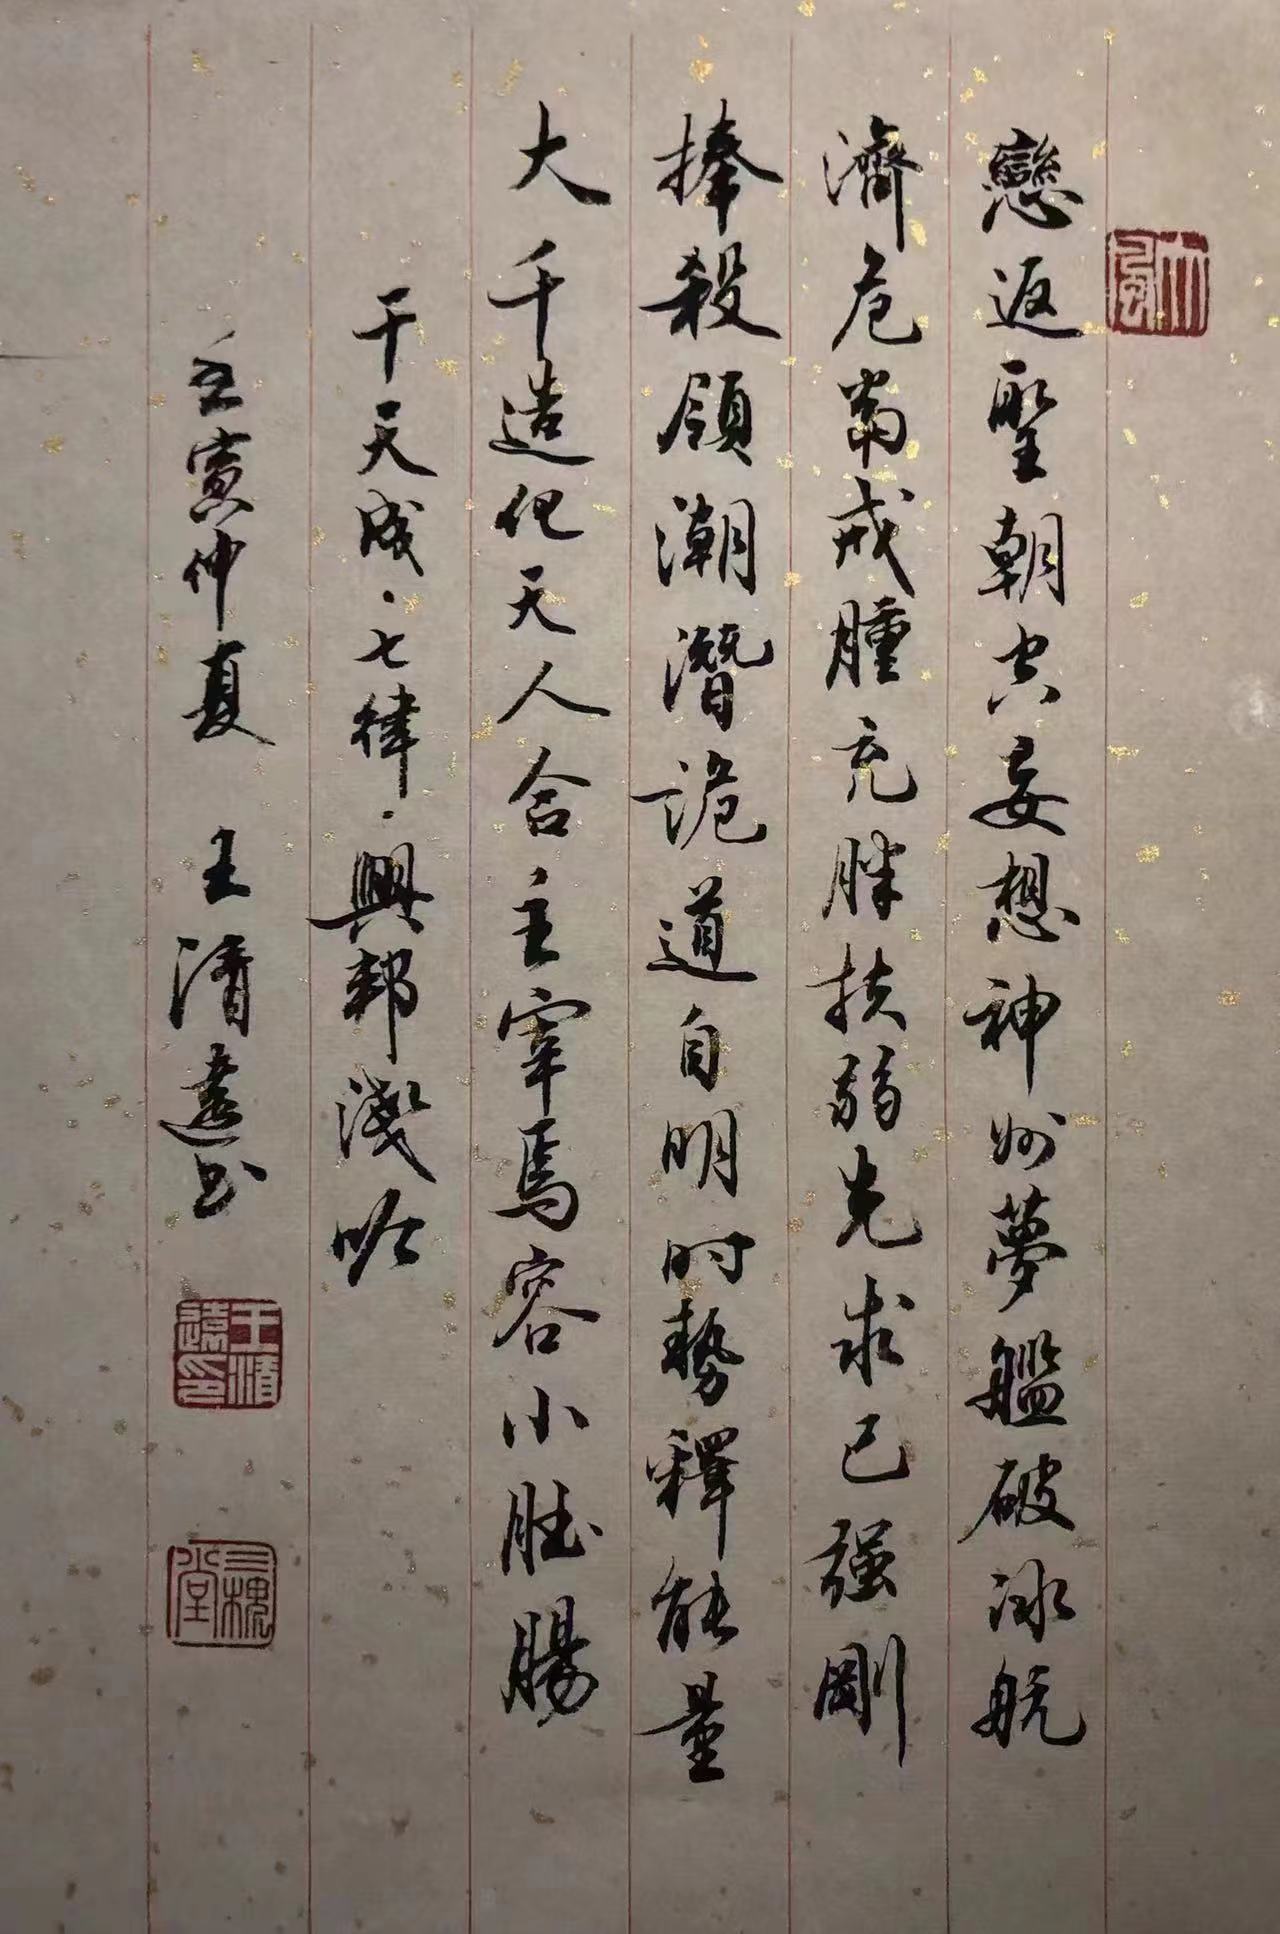 大風
戀返聖朝空妄想神州夢艦破冰航
濟危當戒腫充胖扶弱先求己强剛
捧殺領潮潛詭道自明時勢釋能量
大千造化天人合主宰焉容小肚腸
干天成·七律·興邦淺吟
壬寅仲夏 王清遠书
王清遠印
三槐堂